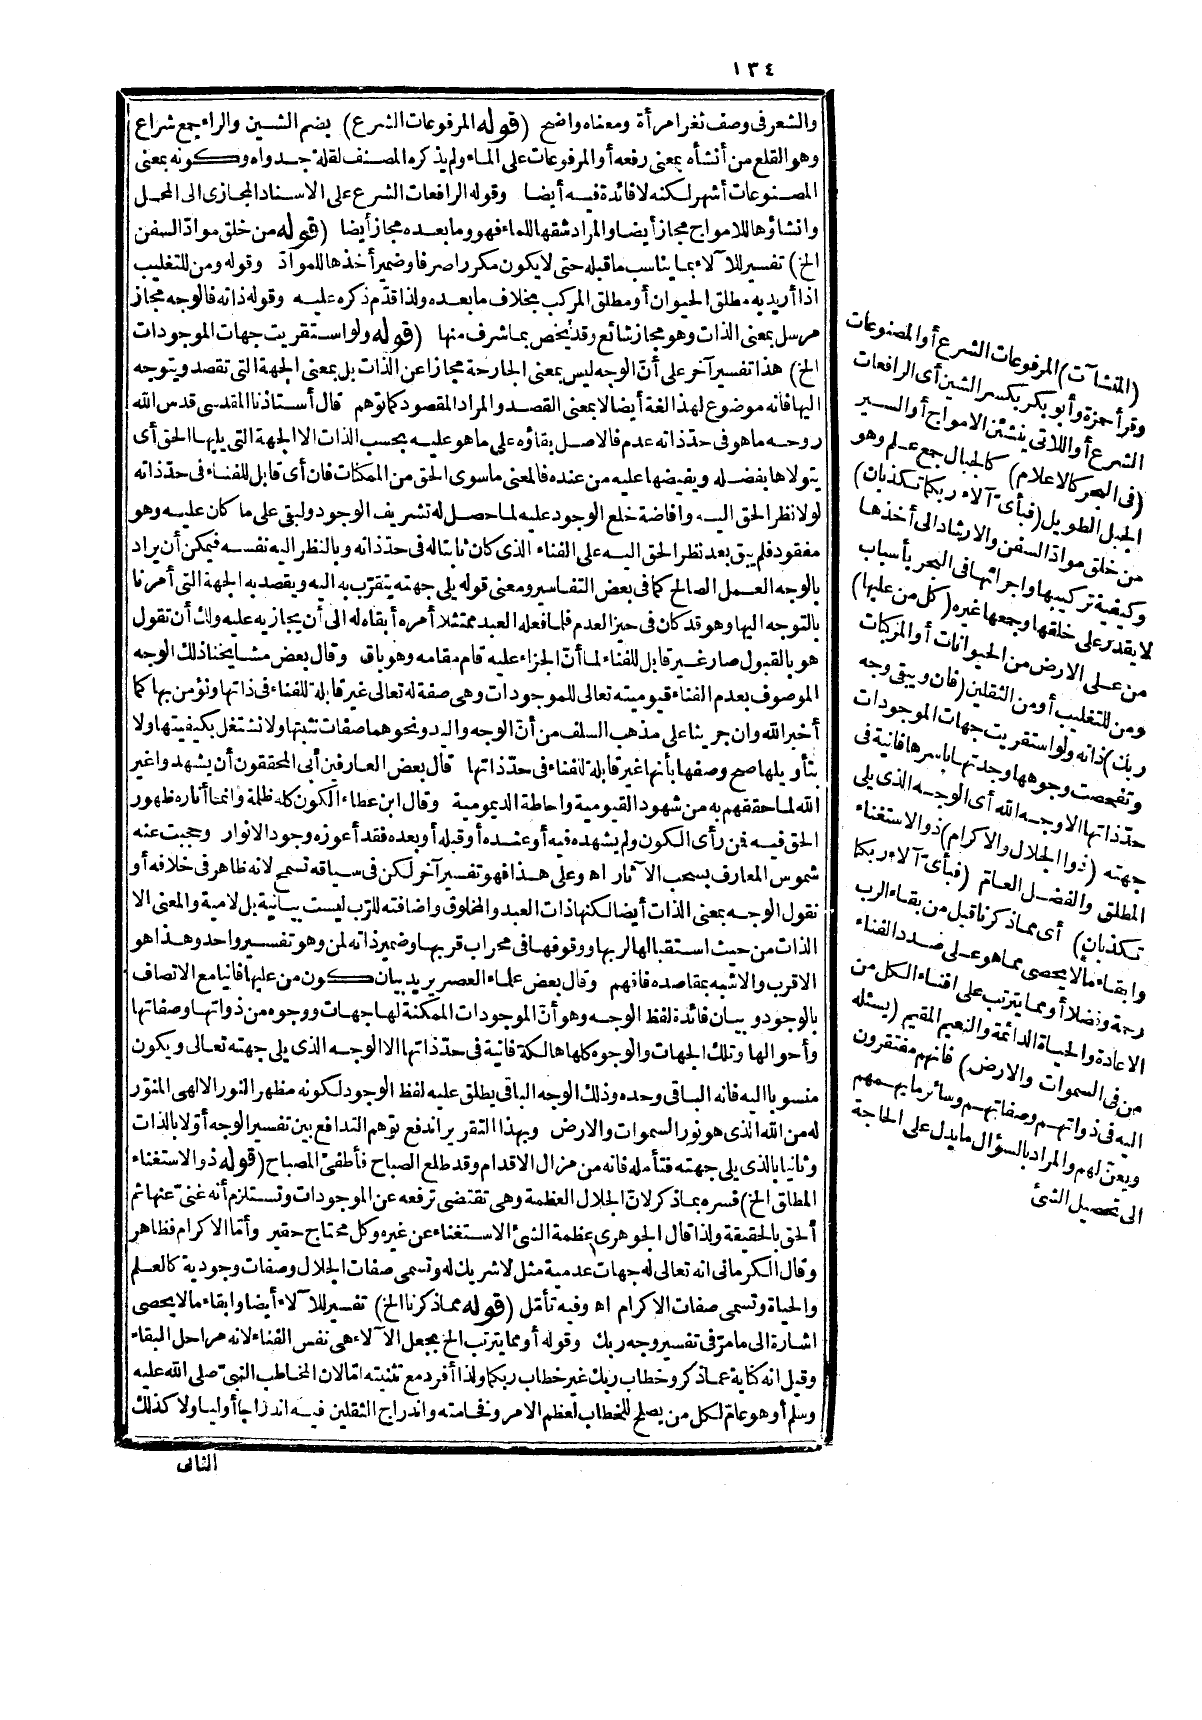 ١٣٤
والشعر فى وصف ثغر امرأة ومعناه واضح (قوله المرفوعات الشرع) بضم الشين والراء جمع شراع
وهو القلع من أنشأه بمعنى رفعه أو المرفوعات على الماء ولم يذكره المصنف لقلة جدواه وكونه بمعنى
المصنوعات أشهر لكنه لا فائدة فيه أيضا وقوله الرافعات الشرع على الاسناد المجازى الى المحل
وانشاؤها للامواج مجاز أيضا والمراد شقها للماء فهو وما بعده مجاز أيضا (قوله من خلق موادّ السفن
الخ) تفسير للآلاء بما يناسب ما قبله حتى لا يكون مكررا صرفا وضمير أخذها للموادّ وقوله ومن للتغليب
اذا أريد به مطلق الحيوان أو مطلق المركب بخلاف ما بعده ولذا قدّم ذكره عليه وقوله ذاته فالوجه مجاز
مرسل بمعنى الذات وهو مجاز شائع وقد يخص بما شرف منها (قوله ولو استقريت جهات الموجودات
الخ) هذا تفسير آخر على أنّ الوجه ليس بمعنى الجارحة مجازا عن الذات بل بمعنى الجهة التى تقصد ويتوجه
اليها فانه موضوع لهذا لغة أيضا لا بمعنى القصد والمراد المقصود كما توهم قال أستاذنا المقدسى قدس الله
روحه ما هو فى حدّ ذاته عدم فالاصل بقاؤه على ما هو عليه بحسب الذات الا الجهة التى يليها الحق أى
يتولاها بفضله ويفيضها عليه من عنده فالمعنى ما سوى الحق من الممكنات فان أى قابل للفناء فى حدّ ذاته
لولا نظر الحق اليه وافاضة خلع الوجود عليه لما حصل له تشريف الوجود ولبقى على ما كان عليه وهو
مفقود فلم يبق بعد نظر الحق اليه على الفناء الذى كان ثابتا له فى حدّ ذاته وبالنظر اليه نفسه فيمكن أن يراد
بالوجه العمل الصالح كما فى بعض التفاسير ومعنى قوله يلى جهته يتقرّب به اليه ويقصد به الجهة التى أمرنا
بالتوجه اليها وهو قد كان فى حيز العدم فلما فعله العبد ممتثلا أمره أبقاه له الى أن يجازيه عليه ولك أن تقول
هو بالقبول صار غير قابل للفناء لما أنّ الجزاء عليه قام مقامه وهو باق وقال بعض مشايخنا ذلك الوجه
الموصوف بعدم الفناء قيوميته تعالى للموجودات وهى صفة له تعالى غير قابلة للفناء فى ذاتها ونؤمن بها كما
أخبر الله وان جرينا على مذهب السلف من أنّ الوجه واليد ونحوهما صفات نثبتها ولا نشتغل بكيفيتها ولا
بتأويلها صح وصفها بأنها غير قابلة للفناء فى حدّ ذاتها قال بعض العارفين أبى المحققون أن يشهدوا غير
الله لما حققهم به من شهود القيومية واحاطة الديمومية وقال ابن عطاء الكون كله ظلمة وانما أناره ظهور
الحق فيه فمن رأى الكون ولم يشهده فيه أو عنده أو قبله أو بعده فقد أعوزه وجود الانوار وحجبت عنه
شموس المعارف بسحب الآثار اه وعلى هذا فهو تفسير آخر لكن فى سياقه تسمح لانه ظاهر فى خلافه أو
نقول الوجه بمعنى الذات أيضا لكنها ذات العبد والمخلوق واضافته للرّب ليست بيانية بل لامية والمعنى الا
الذات من حيث استقبالها لربها ووقوفها فى محراب قربها وضمير ذاته لمن وهو تفسير واحد وهذا هو
الاقرب والاشبه بمقاصده فافهم وقال بعض علماء العصر يريد بيان كون من عليها فانيا مع الاتصاف
بالوجود وبيان فائدة لفظ الوجه وهو أنّ الموجودات الممكنة لها جهات ووجوه من ذواتها وصفاتها
وأحوالها وتلك الجهات والوجوه كلها هالكة فانية فى حدّ ذاتها الا الوجه الذى يلى جهته تعالى ويكون
منسوبا اليه فانه الباقى وحده وذلك الوجه الباقى يطلق عليه لفظ الوجود لكونه مظهر النور الالهى المنوّر
له من الله الذى هو نور السموات والارض وبهذا التقرير اندفع توهم التدافع بين تفسير الوجه أوّلا بالذات
وثانيا بالذى يلى جهته فتأمله فانه من مزال الاقدام وقد طلع الصباح فأطفئ المصباح (قوله ذو الاستغناء
المطلق الخ) فسره بما ذكر لانّ الجلال العظمة وهى تقتضى ترفعه عن الموجودات وتستلزم أنه غنىّ عنها ثم
ألحق بالحقيقة ولذا قال الجوهرى عظمة الشئ الاستغناء عن غيره وكل محتاج حقير وأمّا الاكرام فظاهر
وقال الكرمانى انه تعالى له جهات عدمية مثل لا شريك له وتسمى صفات الجلال وصفات وجودية كالعلم
والحياة وتسمى صفات الاكرام اه وفيه تأمّل (قوله مما ذكرنا الخ) تفسير للآلاء أيضا وابقاء ما لا يحصى
اشارة الى ما مرّ فى تفسير وجه ربك وقوله أو مما يترتب الخ بجعل الآلاء هى نفس الفناء لانه مراحل البقاء
وقيل انه كناية عما ذكر وخطاب ربك غير خطاب ربكما ولذا أفرد مع تثنيته امّا لان المخاطب النبىّ صلى الله عليه
وسلم أو هو عامّ لكل من يصلح للخطاب لعظم الامر وفخامته واندراج الثقلين فيه اندراجا أوليا ولا كذلك
الثانى
(المنشآت) المرفوعات الشرع أو المصنوعات
وقرأ حمزة وأبو بكر بكسر الشين أى الرافعات
الشرع أو اللاتى ينشئن الامواج أو السير
(فى البحر كالاعلام) كالجبال جمع علم وهو
الجبل الطويل (فبأىّ آلاء ربكما تكذبان)
من خلق موادّ السفن والارشاد الى أخذها
وكيفية تركيبها واجرائها فى البحر بأسباب
لا يقدر على خلقها وجمعها غيره (كل من عليها)
من على الارض من الحيوانات أو المركبات
ومن للتغليب أو من الثقلين (فان ويبقى وجه
ربك) ذاته ولو استقريت جهات الموجودات
وتفحصت وجوهها وجدتها بأسرها فانية فى
حدّ ذاتها الا وجه الله أى الوجه الذى يلى
جهته (ذو الجلال والاكرام) ذو الاستغناء
المطلق والفضل العامّ (فبأىّ آلاء ربكما
تكذبان) أى مما ذكرنا قبل من بقاء الرب
وابقاء ما لا يحصى مما هو على صدد الفناء
رحمة وفضلا أو مما يترتب على افناء الكل من
الاعادة والحياة الدائمة والنعيم المقيم (يسئله
من فى السموات والارض) فانهم مفتقرون
اليه فى ذواتهم وصفاتهم وسائر ما يهمهم
ويعنّ لهم والمراد بالسؤال ما يدل على الحاجة
الى تحصيل الشئ